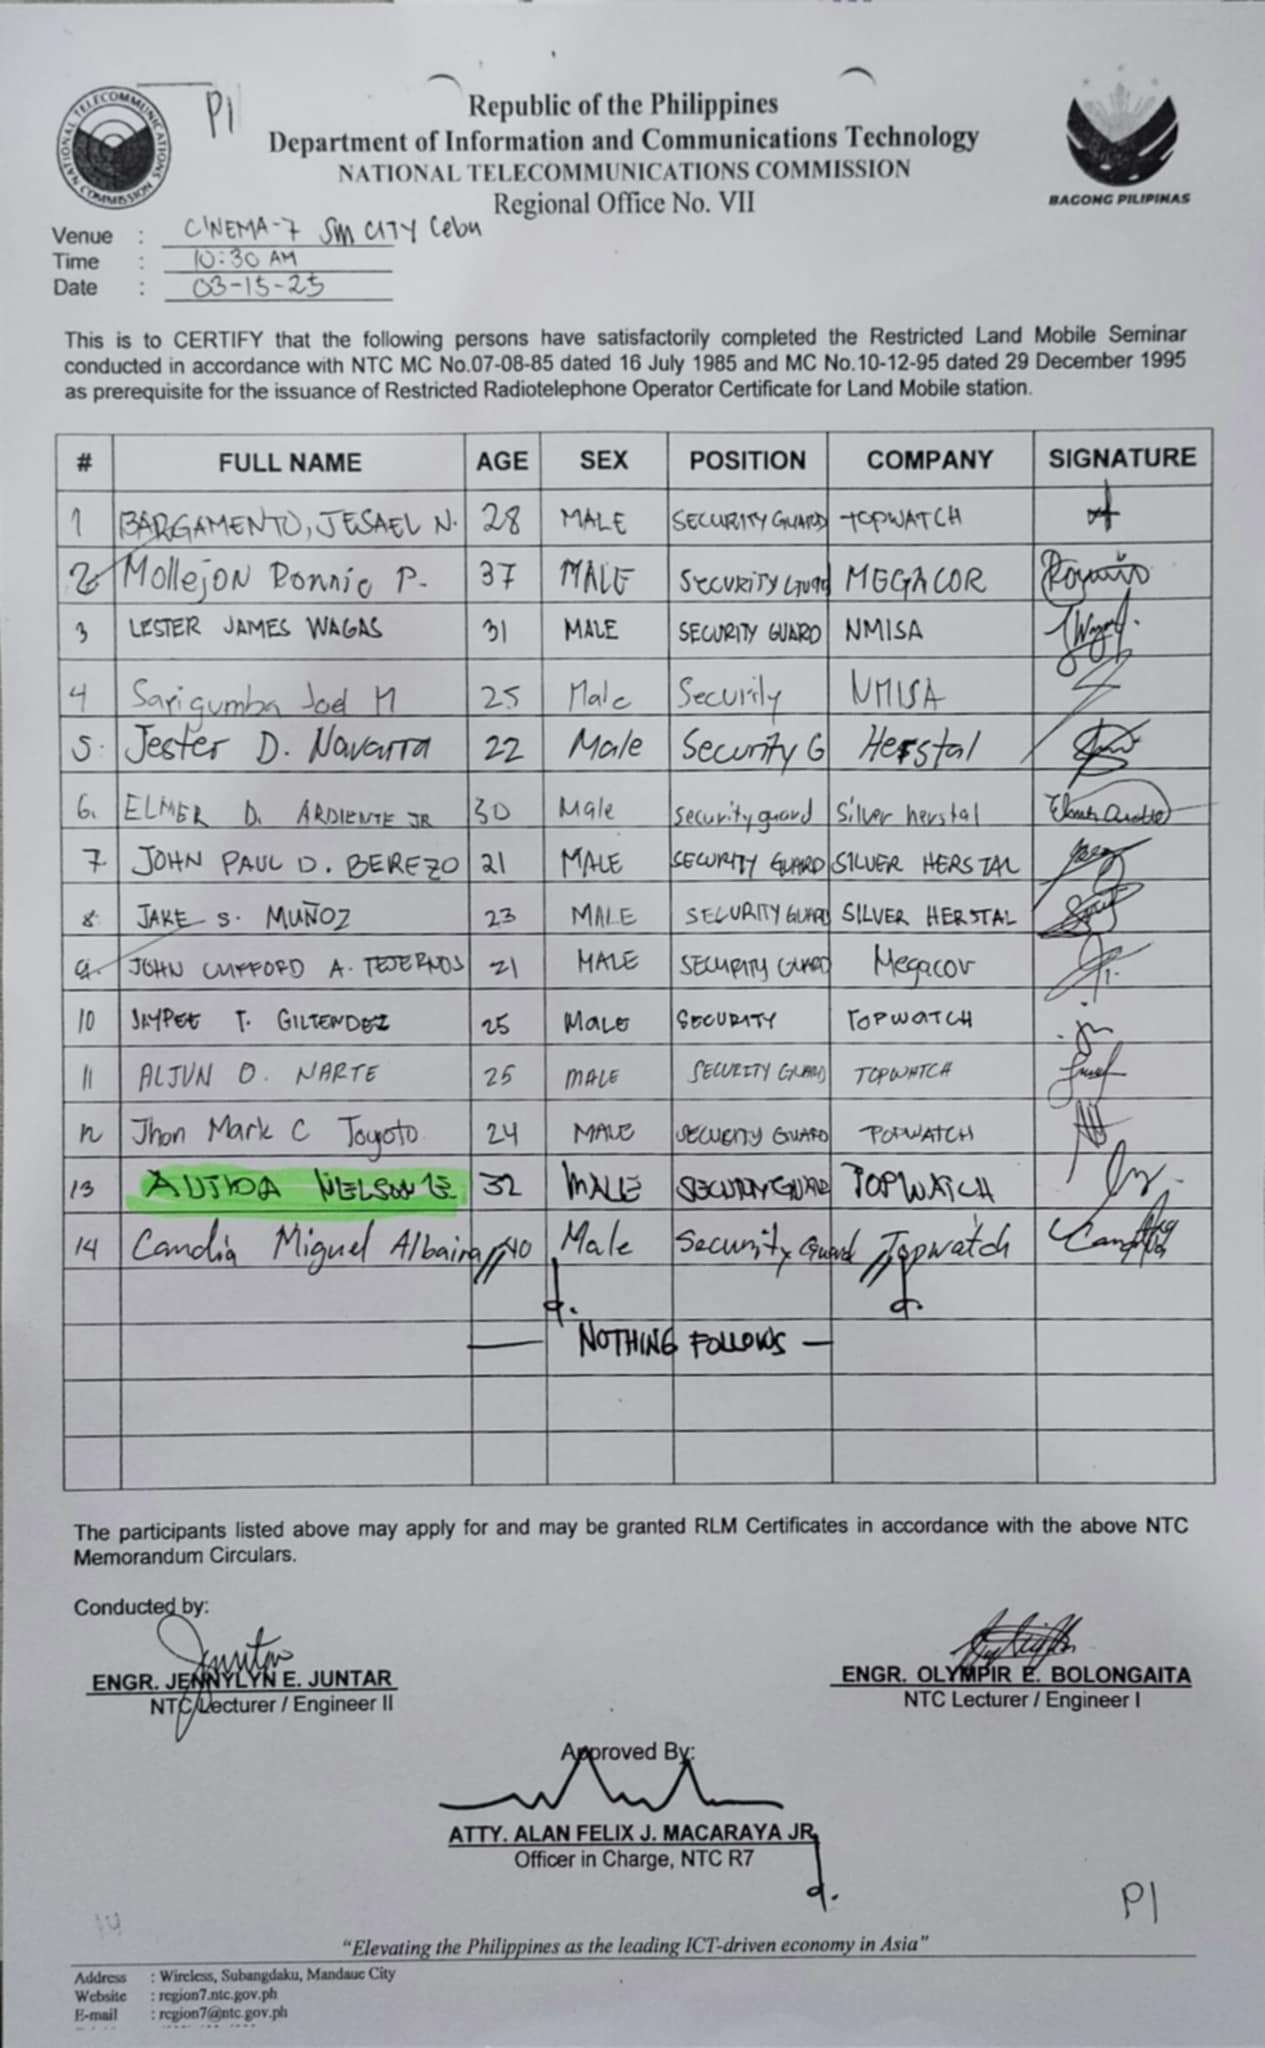 NATIONAL TELECOMMUNICATIONS COMMISSION
P1
Republic of the Philippines
Department of Information and Communications Technology
NATIONAL TELECOMMUNICATIONS COMMISSION
Regional Office No. VII
BAGONG PILIPINAS
Venue : CINEMA-7 SM CITY Cebu
Time : 10:30 AM
Date : 03-15-25
This is to CERTIFY that the following persons have satisfactorily completed the Restricted Land Mobile Seminar
conducted in accordance with NTC MC No.07-08-85 dated 16 July 1985 and MC No.10-12-95 dated 29 December 1995
as prerequisite for the issuance of Restricted Radiotelephone Operator Certificate for Land Mobile station.
# FULL NAME AGE SEX POSITION COMPANY SIGNATURE
1 BARGAMENTO, JESAEL N. 28 MALE SECURITY GUARD TOPWATCH
2 Mollejon Ronnie P. 37 MALE Security Guard MEGACOR
3 LESTER JAMES WAGAS 31 MALE SECURITY GUARD NMISA
4 Sarigumba Joel M 25 Male Security NMISA
5. Jester D. Navarra 22 Male Security G Herstal
6. ELMER D. ARDIENTE JR 30 Male security guard Silver herstal
7. JOHN PAUL D. BEREZO 21 MALE SECURITY GUARD SILVER HERSTAL
8. JAKE S. MUÑOZ 23 MALE SECURITY GUARD SILVER HERSTAL
9. JOHN CLIFFORD A. TEJERNOS 21 MALE SECURITY GUARD Megacor
10 JAYPEE T. GILTENDEZ 25 MALE SECURITY TOPWATCH
11 ALJUN O. NARTE 25 MALE SECURITY GUARD TOPWATCH
12 Jhon Mark C Toyoto 24 MALE SECURITY GUARD TOPWATCH
13 NELSON 32 MALE SECURITY GUARD TOPWATCH
14 Candia Miguel Albaira 40 Male Security Guard Topwatch
— NOTHING FOLLOWS —
The participants listed above may apply for and may be granted RLM Certificates in accordance with the above NTC
Memorandum Circulars.
Conducted by:
ENGR. JENNYLYN E. JUNTAR
NTC Lecturer / Engineer II
ENGR. OLYMPIR E. BOLONGAITA
NTC Lecturer / Engineer I
Approved By:
ATTY. ALAN FELIX J. MACARAYA JR
Officer in Charge, NTC R7
P1
14
"Elevating the Philippines as the leading ICT-driven economy in Asia"
Address : Wireless, Subangdaku, Mandaue City
Website : region7.ntc.gov.ph
E-mail : region7@ntc.gov.ph